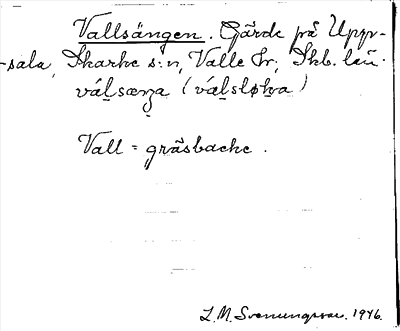 Vallsängen. Gärde på Upp-
-sala, Skarke s:n, Valle hr, Skb. län.
vál̥sæŋa (vál̥sløka)
Vall = gräsbacke.
L. M. Svenungsson. 1946.